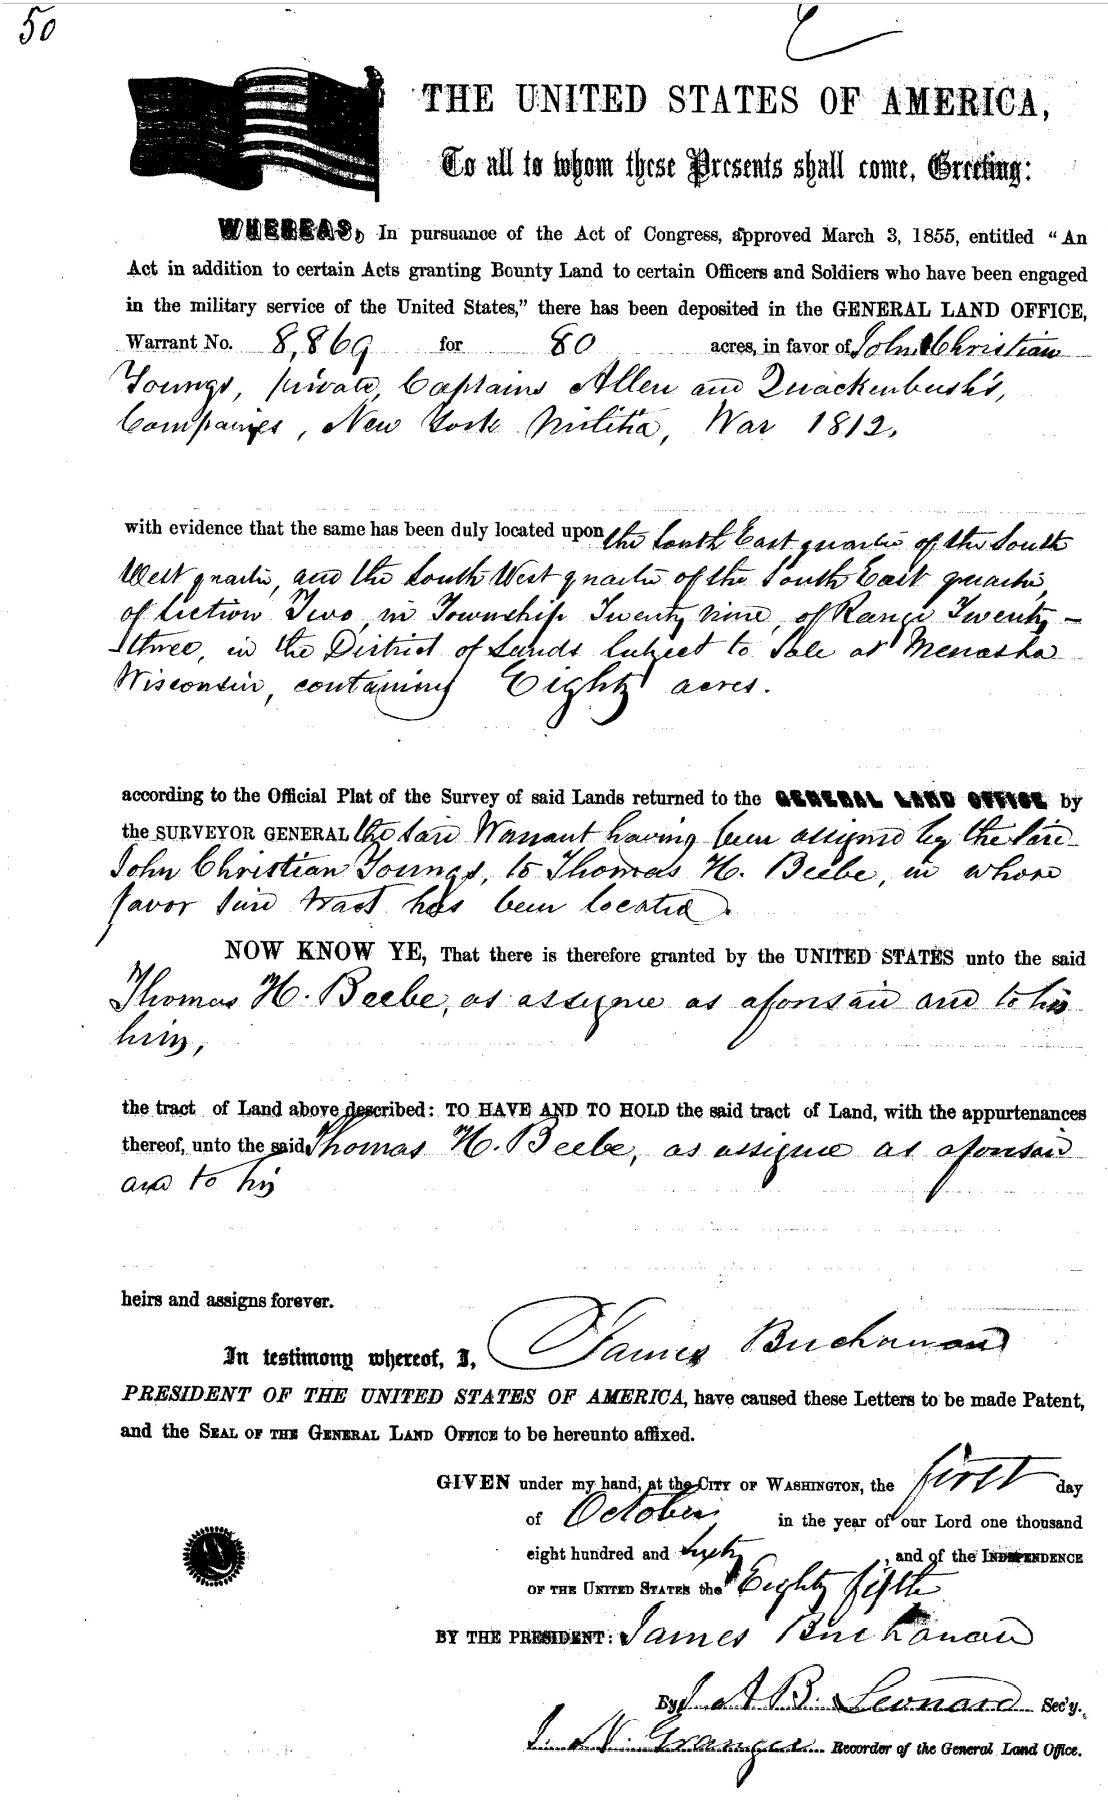 50
THE UNITED STATES OF AMERICA,
To all to whom these Presents shall come, Greeting:
WHEREAS, In pursuance of the Act of Congress, approved March 3, 1855, entitled "An
Act in addition to certain Acts granting Bounty Land to certain Officers and Soldiers who have been engaged
in the military service of the United States," there has been deposited in the GENERAL LAND OFFICE,
Warrant No. 8,869 for 80 acres, in favor of John Christian
Youngs, private, Captains Allen and Quackenbush's,
Companies, New York Militia, War 1812.
with evidence that the same has been duly located upon the South East quarter of the South
West quarter, and the South West quarter of the South East quarter,
of Section Two, in Township Twenty nine, of Range Twenty-
three, in the District of Lands Subject to Sale at Menasha
Wisconsin, containing Eighty acres.
according to the Official Plat of the Survey of said Lands returned to the GENERAL LAND OFFICE by
the SURVEYOR GENERAL the said Warrant having been assigned by the said
John Christian Youngs, to Thomas H. Beebe, in whose
favor said tract has been located.
NOW KNOW YE, That there is therefore granted by the UNITED STATES unto the said
Thomas H. Beebe, as assignee as aforesaid and to his
heirs,
the tract of Land above described: TO HAVE AND TO HOLD the said tract of Land, with the appurtenances
thereof, unto the said Thomas H. Beebe, as assignee as aforesaid
and to his
heirs and assigns forever.
In testimony whereof, I, James Buchanan
PRESIDENT OF THE UNITED STATES OF AMERICA, have caused these Letters to be made Patent,
and the SEAL OF THE GENERAL LAND OFFICE to be hereunto affixed.
GIVEN under my hand, at the CITY OF WASHINGTON, the first day
of October in the year of our Lord one thousand
eight hundred and sixty, and of the INDEPENDENCE
OF THE UNITED STATES the Eighty fifth
BY THE PRESIDENT: James Buchanan
By J. A. B. Leonard Sec'y.
J. N. Granger Recorder of the General Land Office.